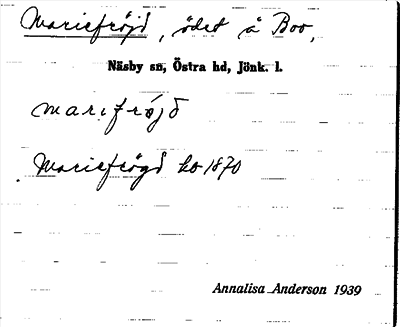 Mariefröjd, ödet å Boo,
Näsby sn, Östra hd, Jönk. l.
marifröjd
Mariefrögd ko 1870
Annalisa Anderson 1939